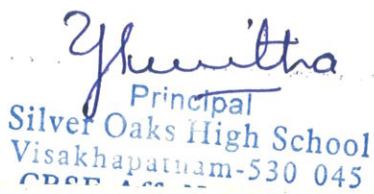 Principal
Silver Oaks High School
Visakhapatnam-530 045
CBSE Aff.